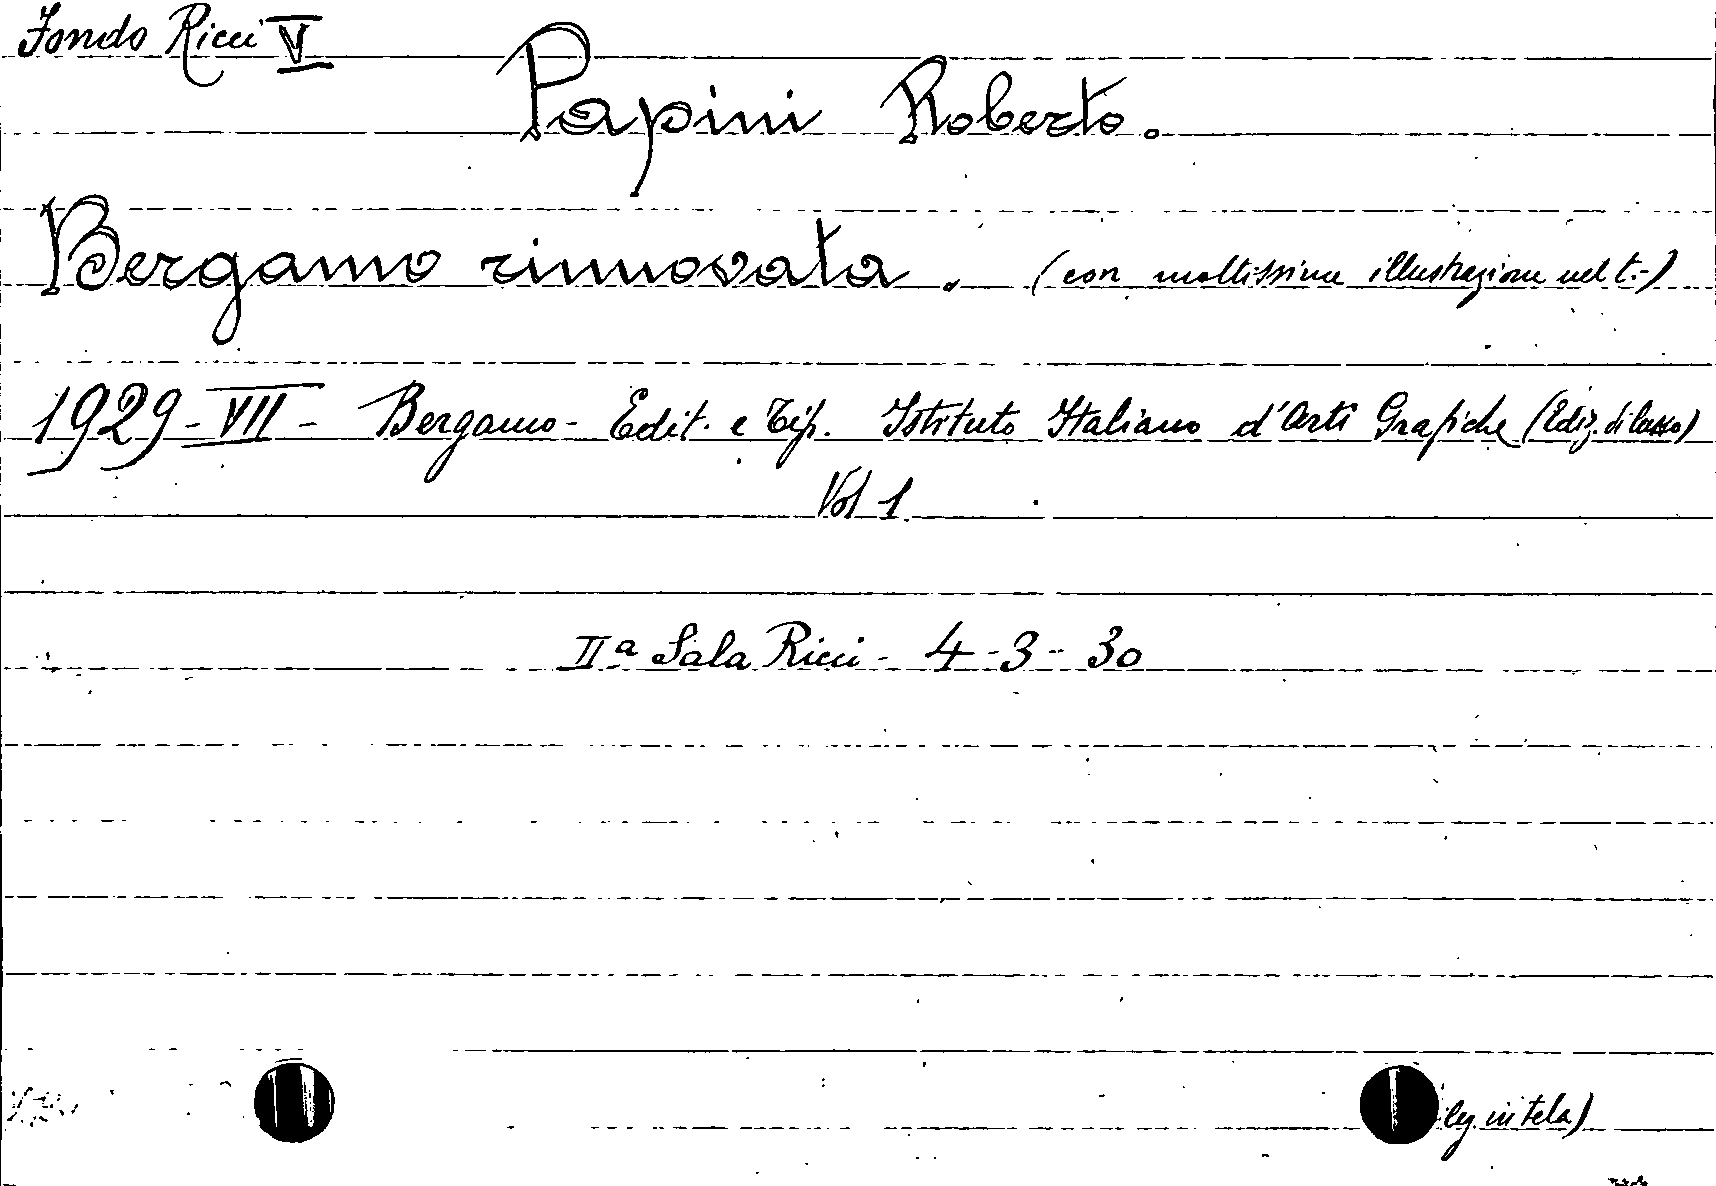 Fondo Ricci V
Papini Roberto.
Bergamo rinnovata. (con moltissime illustrazioni nel t.-)
1929-VII- Bergamo- Edit. e Tip. Istituto Italiano d'Arti Grafiche (Ediz. di lusso)
Vol 1
IIa Sala Ricci- 4-3-30
leg. in tela)